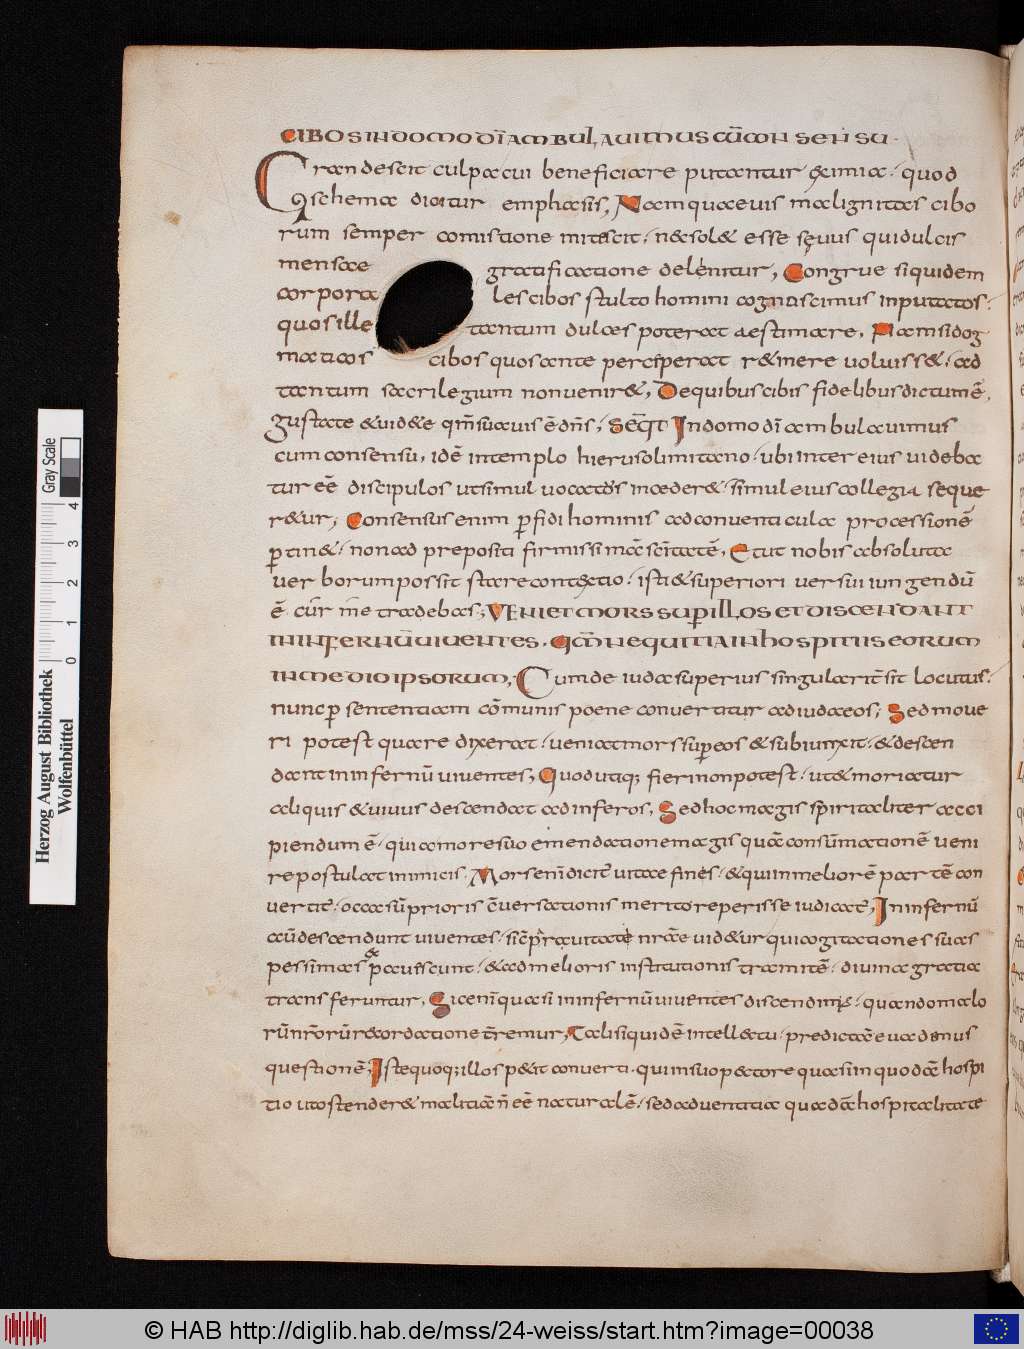 CIBOS IN DOMO DĪ AMBULAVIMUS CŪ CONSENSU·
Grandescit culpa cui beneficiare putantur eximia· quod
schema dicitur emphasis, Nam quaevis malignitas cibo
rum semper comistione mitescit· necsolet esse sęvus qui dulcis
mensae gratificatione delenitur, Congrue siquidem
corpora les cibos stulto homini cognascimus inputatos·
quos ille tantum dulces poterat aestimare, Nam si dog
maticos cibos quos ante perciperat retinere voluisset· ad
tantum sacrilegium non veniret, De quibus cibis fidelibus dictum ē,
gustate et videte qm̄ suavis ē dn̄s, Seqt̄ In domo dī ambulavimus
cum consensu, idē in templo hierusolimitano· ubi inter eius videba
tur eē discipulos ut simul vocatos inaederet· simul eius collegia seque
retur, Consensus enim ꝑfidi hominis ad conventicula processionē
ꝑtinet· non ad preposita firmissimā scitatē, Et ut nobis absoluta
verborum possit stare contextio· isti et superiori versui iungendū
ē cūr me tradebas; VENIET MORS SUꝐ ILLOS ET DISCENDANT
IN INFERNŪ VIVENTES. QM̄ NEQUITIA IN HOSPITIIS EORUM
IN MEDIO IPSORUM, Cum de iuda superius singularit̄ sit locutus·
nunc ꝑ sententiam cōmunis poene convertitur ad iudaeos; Sed move
ri potest quare dixerat· veniat mors suꝑ eos et subiunxit· et descen
dant in infernū viventes, Quod utiq; fieri non potest· ut et moriatur
aliquis et vivus descendat ad inferos, Sed hoc magis spiritaliter acci
piendum ē· qui a more suo emendatione magis quā consūmationē veni
re postulat inimicis. Mors enī dicit̄ vitae fines· et qui in meliorē partē con
vertit̄· occasū prioris cōversationis merito reperisse iudicat̄, In infernū
aū descendunt viventes· sic pravitate nrāe videtur qui cogitationes suas
pessimas pavescunt· et ad melioris institutionis tramitē· divina gratia
transferuntur, Sic enī quasi in infernū viventes discendim̄· quando malo
rū nr̄orū recordatione tremur, Tali siquidē intellectu· predictae evadimus
questionē, Iste quoq; illos petit converti· qui in suo pectore quasi in quodā hospi
tio ut ostenderet malitiā n̄ eē naturalē· sed adventicia quadā hospitalitate
Herzog August Bibliothek
Wolfenbüttel
Gray Scale
0 1 2 3 4
© HAB http://diglib.hab.de/mss/24-weiss/start.htm?image=00038